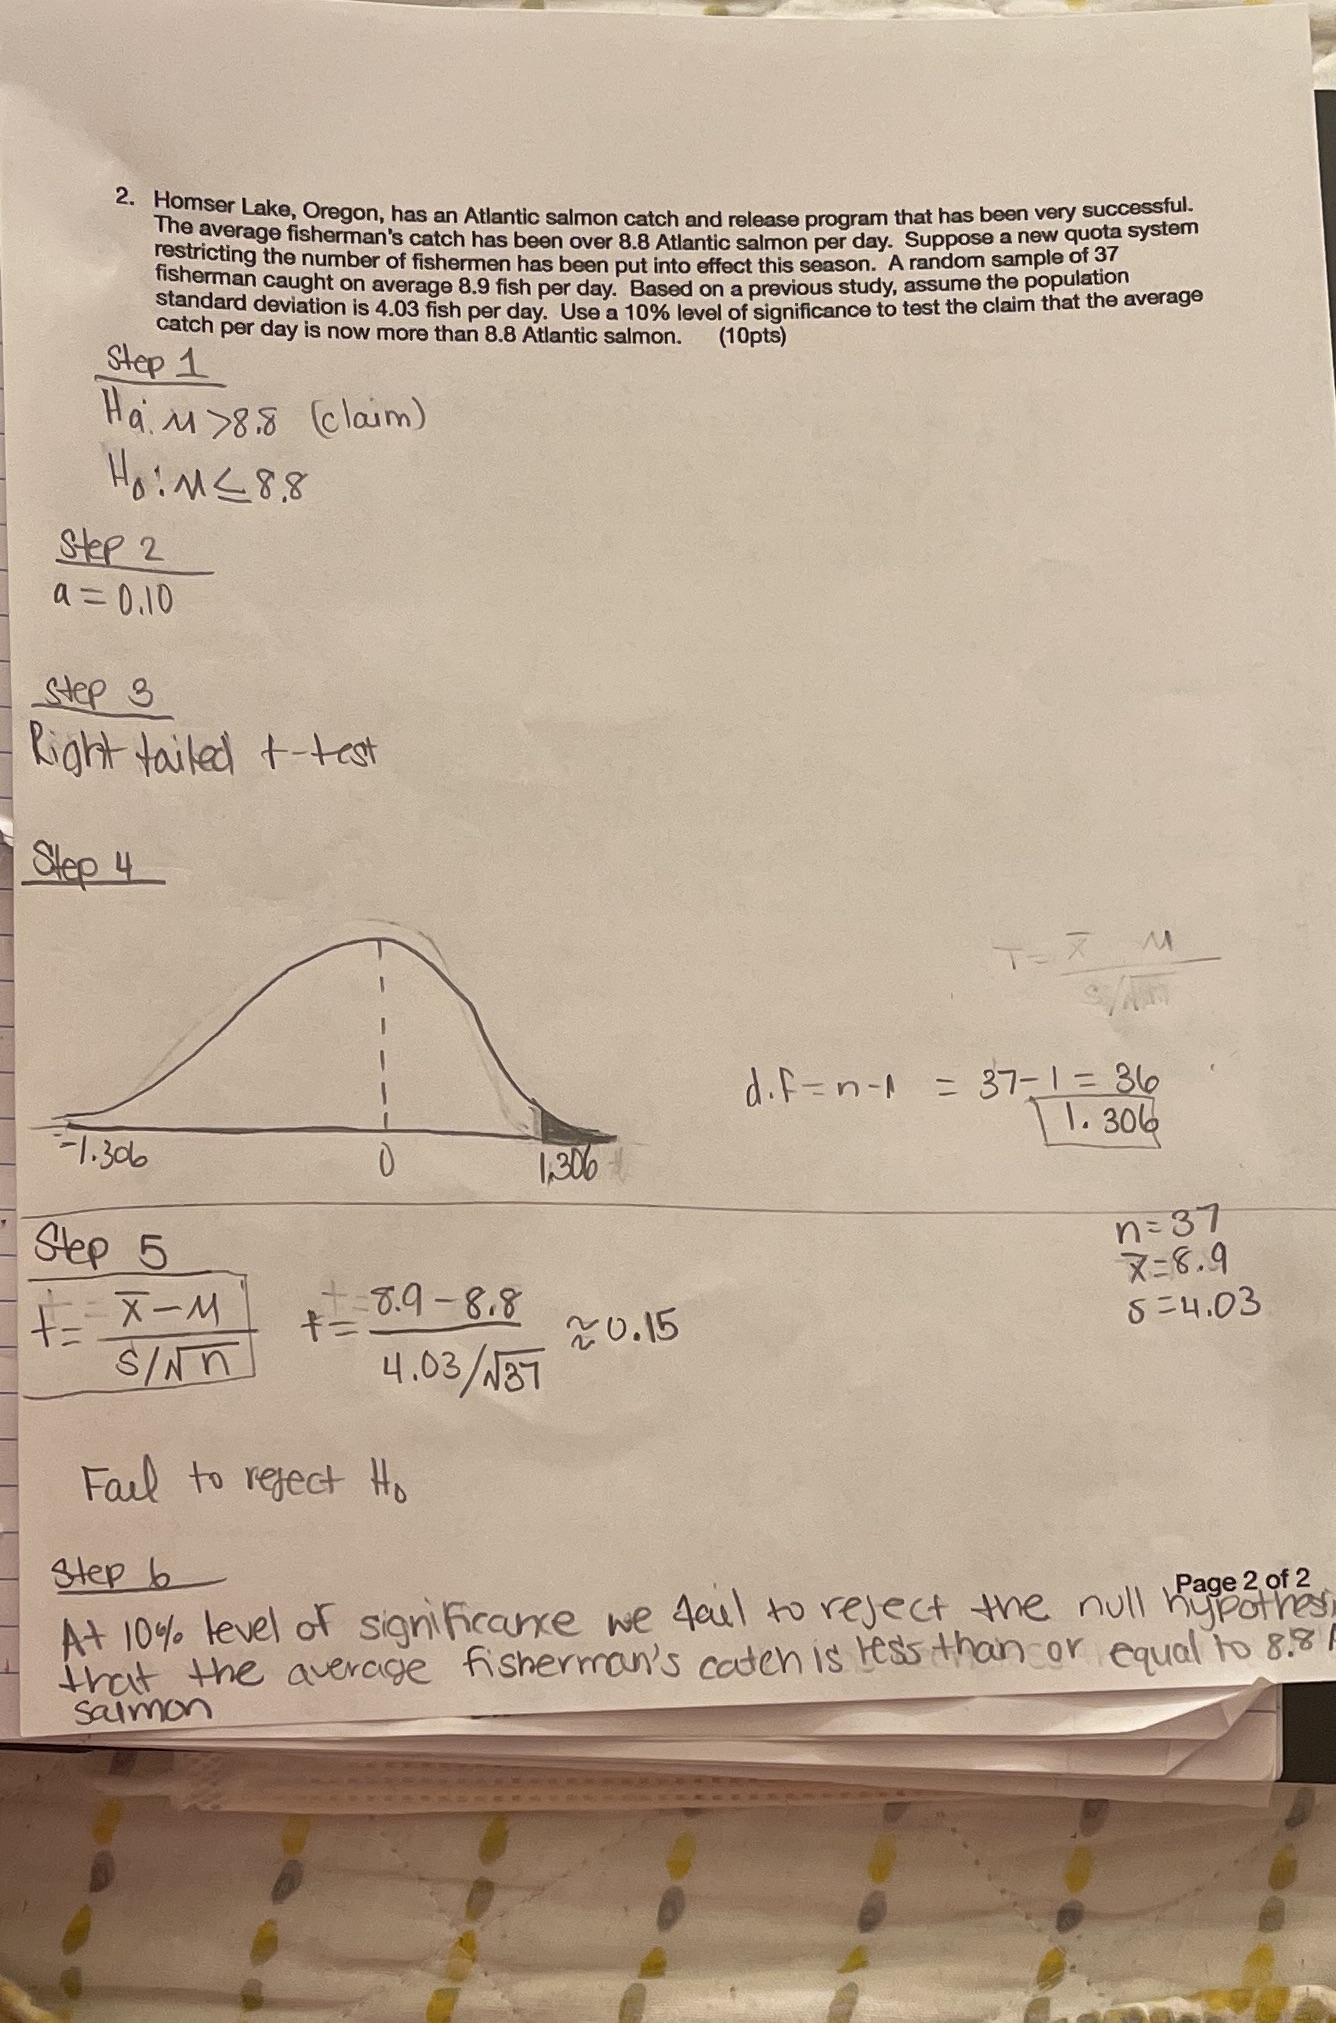 2. Homser Lake, Oregon, has an Atlantic salmon catch and release program that has been very successful.
The average fisherman's catch has been over 8.8 Atlantic salmon per day. Suppose a new quota system
restricting the number of fishermen has been put into effect this season. A random sample of 37
fisherman caught on average 8.9 fish per day. Based on a previous study, assume the population
standard deviation is 4.03 fish per day. Use a 10% level of significance to test the claim that the average
catch per day is now more than 8.8 Atlantic salmon. (10pts)
Step 1
Ha: M >8.8 (claim)
H₀: M ≤ 8.8
Step 2
a = 0.10
Step 3
Right tailed t-test
Step 4
T = x̄ M
S/√n
d.f = n-1 = 37-1 = 36
1.306
-1.306 0 1.306
n=37
x̄=8.9
s=4.03
Step 5
t = x̄ - M / S/√n t = 8.9 - 8.8 / 4.03/√37 ≈ 0.15
Fail to reject H₀
Step 6
Page 2 of 2
At 10% level of significance we fail to reject the null hypothesi
that the average fisherman's catch is less than or equal to 8.8
salmon